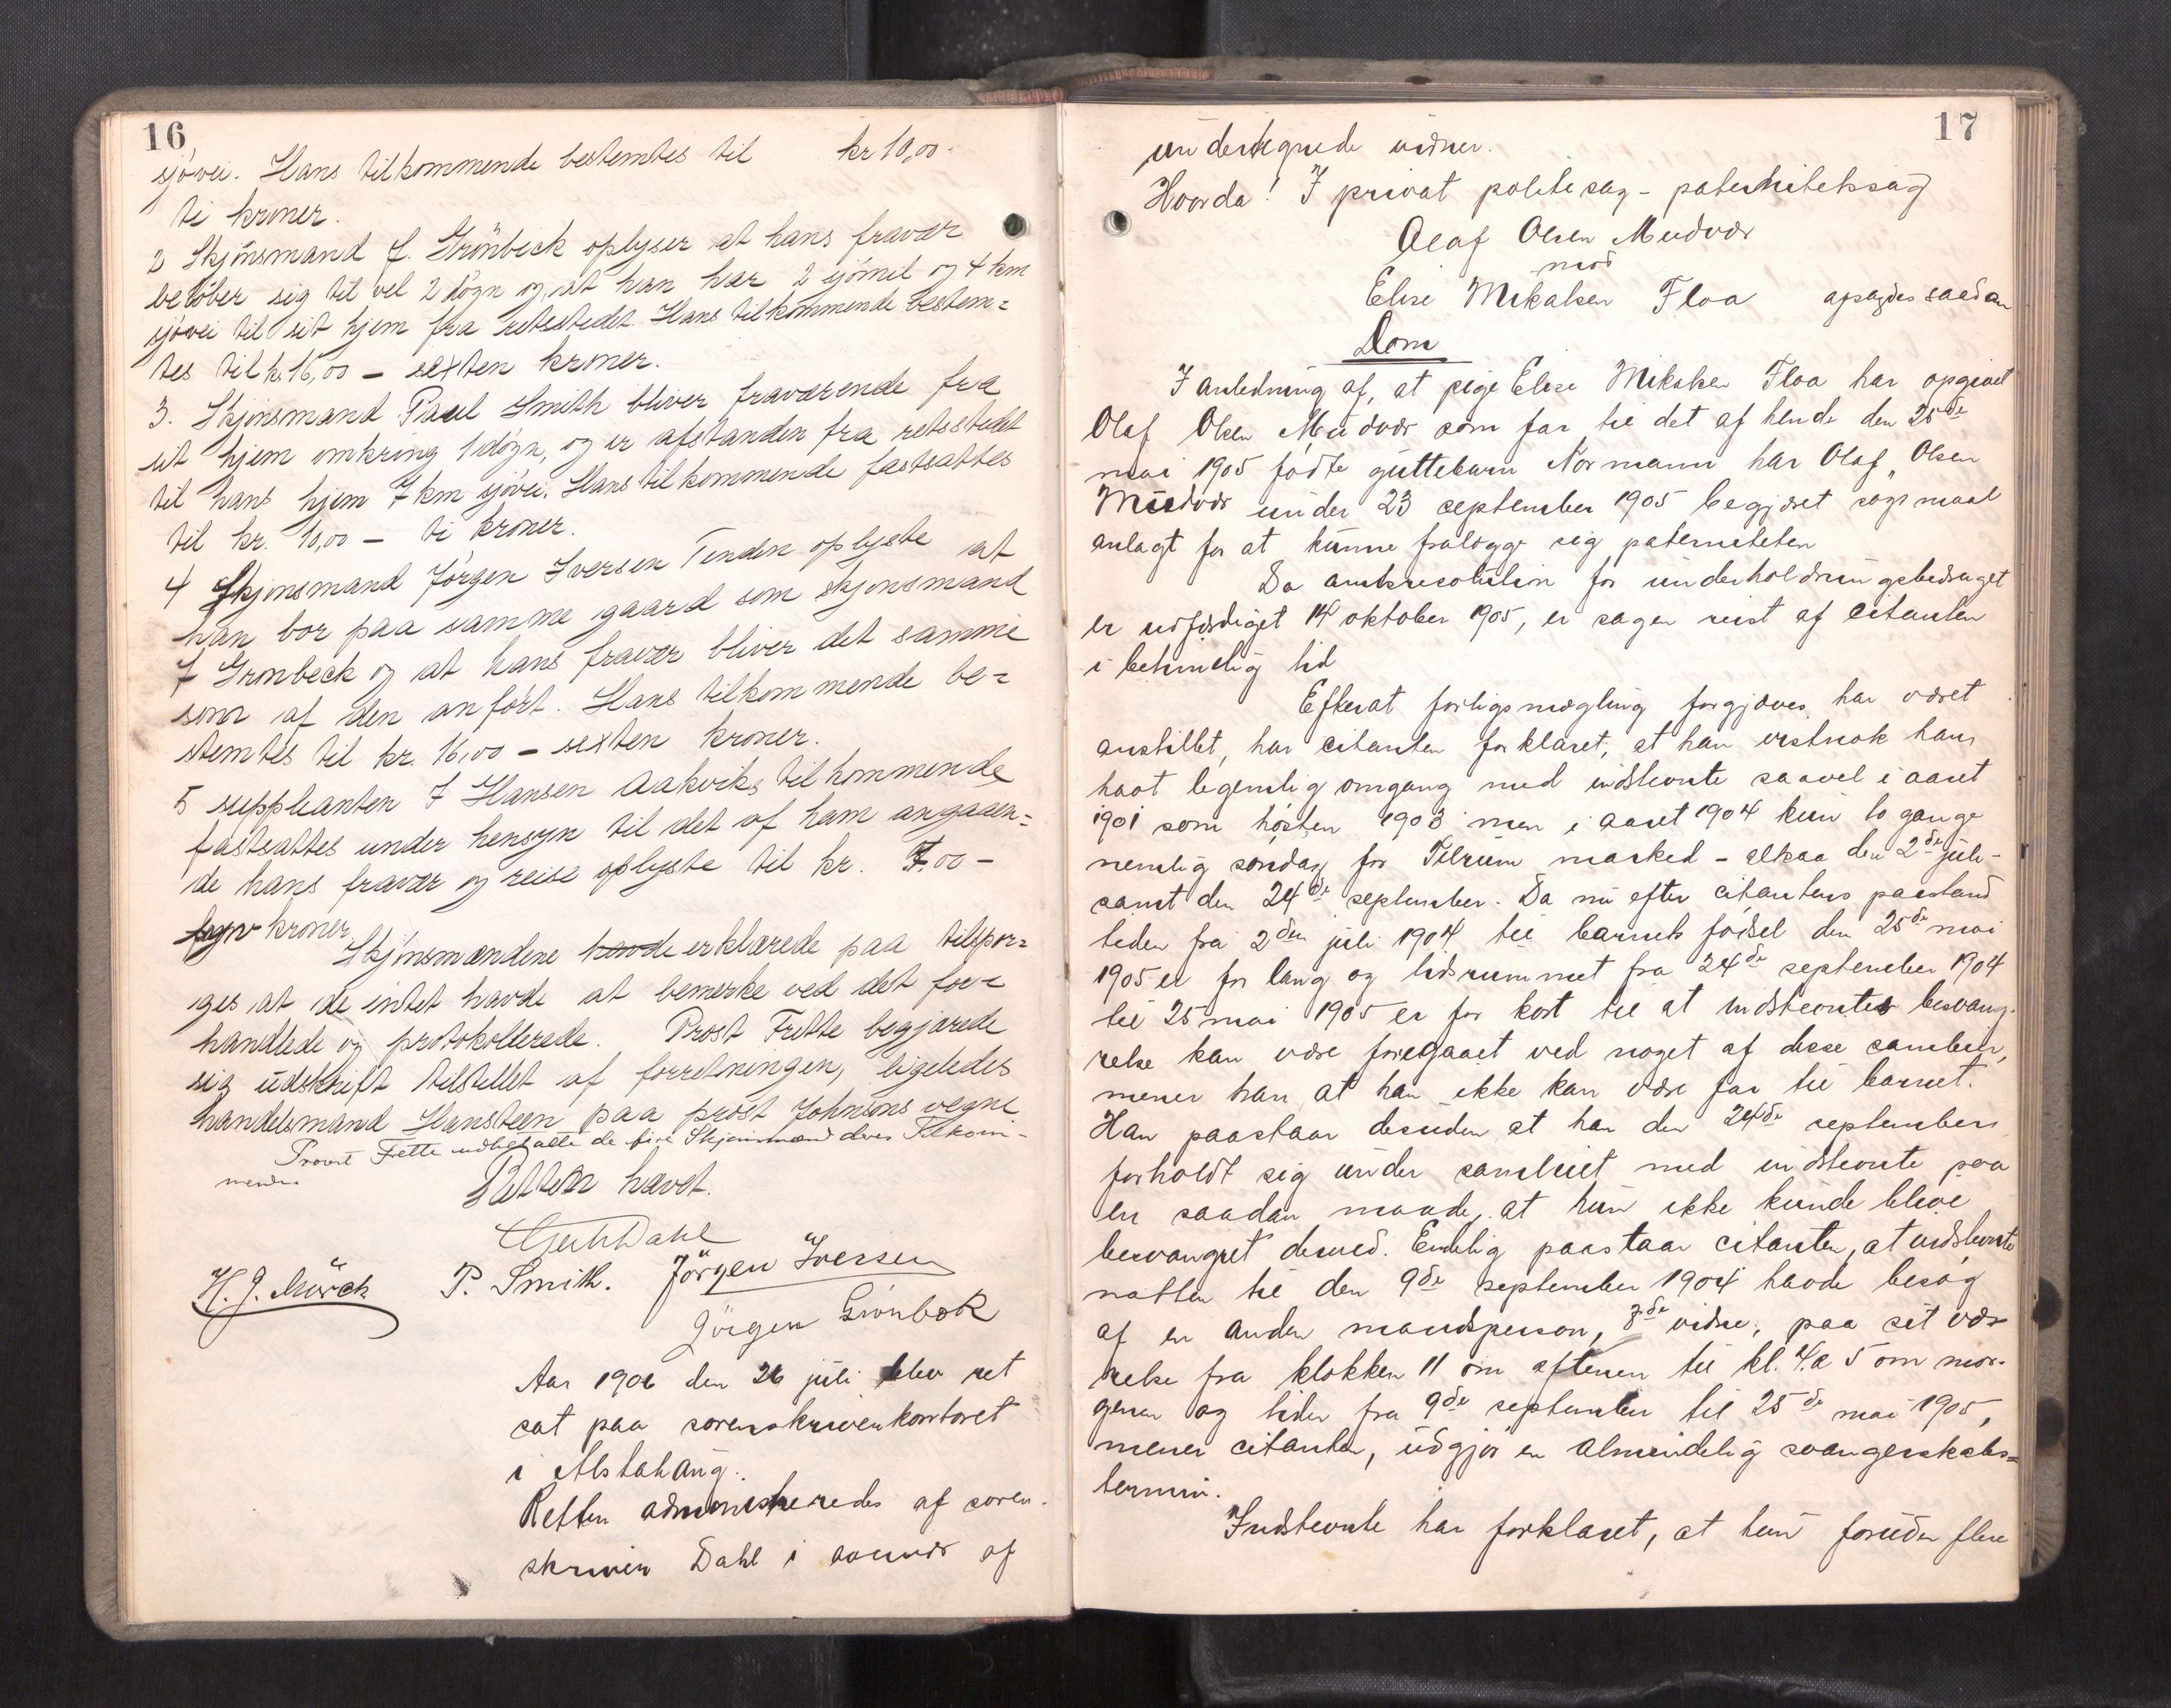 16
sjövei. Hans tilkommende bestemtes til kr 10,00-
ti kroner.
2 Skjönsmand J. Grönbeck oplyser at hans fravær
belöber sig til vel 2 dögn og at han har 2 sjömil og 4 km
sjövei til sit hjem fra retsstedet. Hans tilkommende bestem=
tes til kr 16,00 – sexten kroner.
3. Skjönsmand Paul Smith bliver fraværende fra
sit hjem omkring 1 dögn, og er afstanden fra retsstedet
til hans hjem 7 km sjövei. Hans tilkommende fastsattes
til kr. 10,00 – ti kroner.
4 Skjönsmand Jörgen Iversen Tenden oplyste at
han bor paa samme gaard som skjönsmand
J Grönbeck og at hans fravær bliver det samme
som af den anfört. Hans tilkommende be=
stemtes til kr. 16,00 – sexten kroner.
5 suppleanten J Hansen Aakviks tilkommende
fastsattes under hensyn til det af ham angaaen=
de hans fravær og reise oplyste til kr. 7.00 –
syv kroner.
Skjönsmændene havde erklærede paa tilspör=
iges at de intet havde at bemerke ved det for=
handlede og protokollerede. Prost Frette begjærede
sig udskrift tilstillet af forretningen, ligeledes
handelsmand Hansteen paa prost Johnsons vegne
Provst Frette udbetalte de fire Skjønsmænd deres Tilkom-
mende.
Retten hævet.
Dahl
H. J. Mörch P. Smith. Jörgen Iversen
Jörgen Grönbæk
Aar 1906 den 26 juli blev ret
sat paa sorenskriverkontoret
i Alstahaug.
Retten administreredes af soren-
skriver Dahl i nærvær af
17
undertegnede vidner.
Hvorda! I privat politisag – paternitetssag
Olaf Olsen Mudvær
mod
Elise Mikalsen Floa afsagdes saadan
Dom
I anledning af, at pige Elise Mikalsen Floa har opgivet
Olaf Olsen Mudvær som far til det af hende den 25de
mai 1905 födte guttebarn Normann har Olaf Olsen
Mudvær under 23 september 1905 begjæret sögsmaal
anlagt for at kunne fralægge sig paterniteten
Da amtsresolution for underholdningsbidraget
er udfærdiget 14 oktober 1905, er sagen reist af citanten
i betimelig tid
Efterat forligsmægling forgjæves har været
anstillet, har citanten forklaret, at han vistnok har
havt legemlig omgang med indstevnte saavel i aaret
1901 som hösten 1903 men i aaret 1904 kun to gange
nemlig söndag for Tilrum marked – altsaa den 2den juli –
samt den 24de september. Da nu efter citantens paastand
tiden fra 2den juli 1904 til barnets födsel den 25de mai
1905 er for lang og tidsrummet fra 24de september 1904
til 25 mai 1905 er for kort til at indstevntes besvang-
relse kan være foregaaet ved noget af disse samleier,
mener han at han ikke kan være far til barnet.
Han paastaar desuden at han den 24de september
forholdt sig under samleiet med indstevnte paa
en saadan maade, at hun ikke kunde blive
besvangret derved. Endelig paastaar citanten, at indstevnte
natten til den 9de september 1904 havde besög
af en anden mandsperson, 8de vidne, paa sit væ-
relse fra klokken 11 om aftenen til kl. 4 a 5 om mor-
genen og tiden fra 9de september til 25de mai 1905,
mener citanten, udgjör en almindelig svangerskabs=
termin.
Indstevnte har forklaret, at hun foruden flere